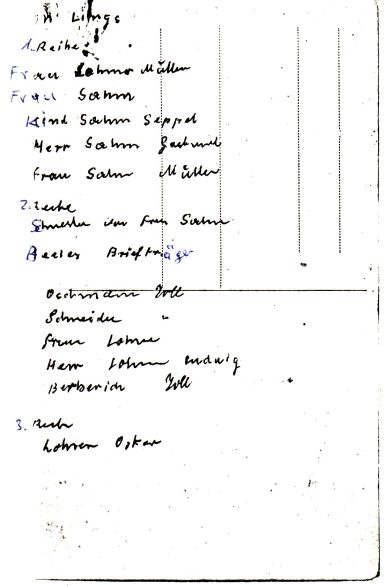 H. Lings
1. Reihe
Frau Lohmo Müller
Frau Sahm
Kind Sahm Seppel
Herr Sahm
Frau Sahm Müller
2. Reihe
Schwester von Frau Sahm
Beeler Briefträger
Oschmann Zoll
Schneider "
Frau Lohne
Herr Lohne Ludwig
Berberich Zoll
3. Reihe
Lohren Oskar